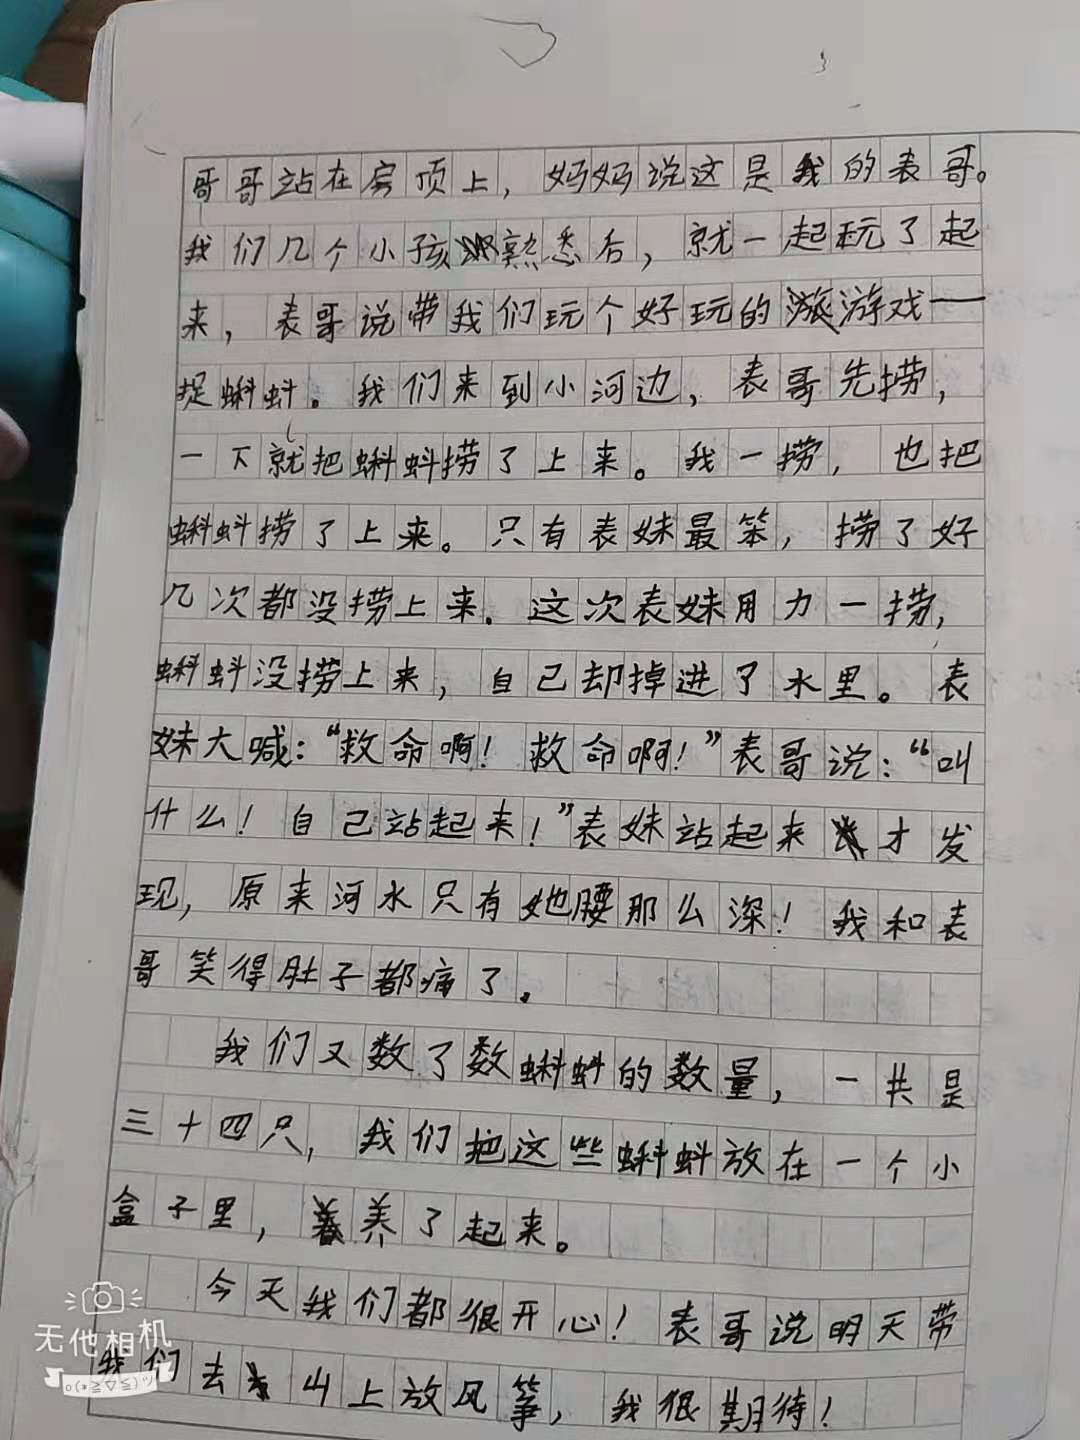 哥哥站在房顶上，妈妈说这是我的表哥。
我们几个小孩熟悉后，就一起玩了起
来，表哥说带我们玩个好玩的游戏——
捉蝌蚪。我们来到小河边，表哥先捞，
一下就把蝌蚪捞了上来。我一捞，也把
蝌蚪捞了上来。只有表妹最笨，捞了好
几次都没捞上来。这次表妹用力一捞，
蝌蚪没捞上来，自己却掉进了水里。表
妹大喊：“救命啊！救命啊！”表哥说：“叫
什么！自己站起来！”表妹站起来才发
现，原来河水只有她腰那么深！我和表
哥笑得肚子都痛了。
我们又数了数蝌蚪的数量，一共是
三十四只，我们把这些蝌蚪放在一个小
盒子里，养了起来。
今天我们都很开心！表哥说明天带
我们去山上放风筝，我很期待！
无他相机